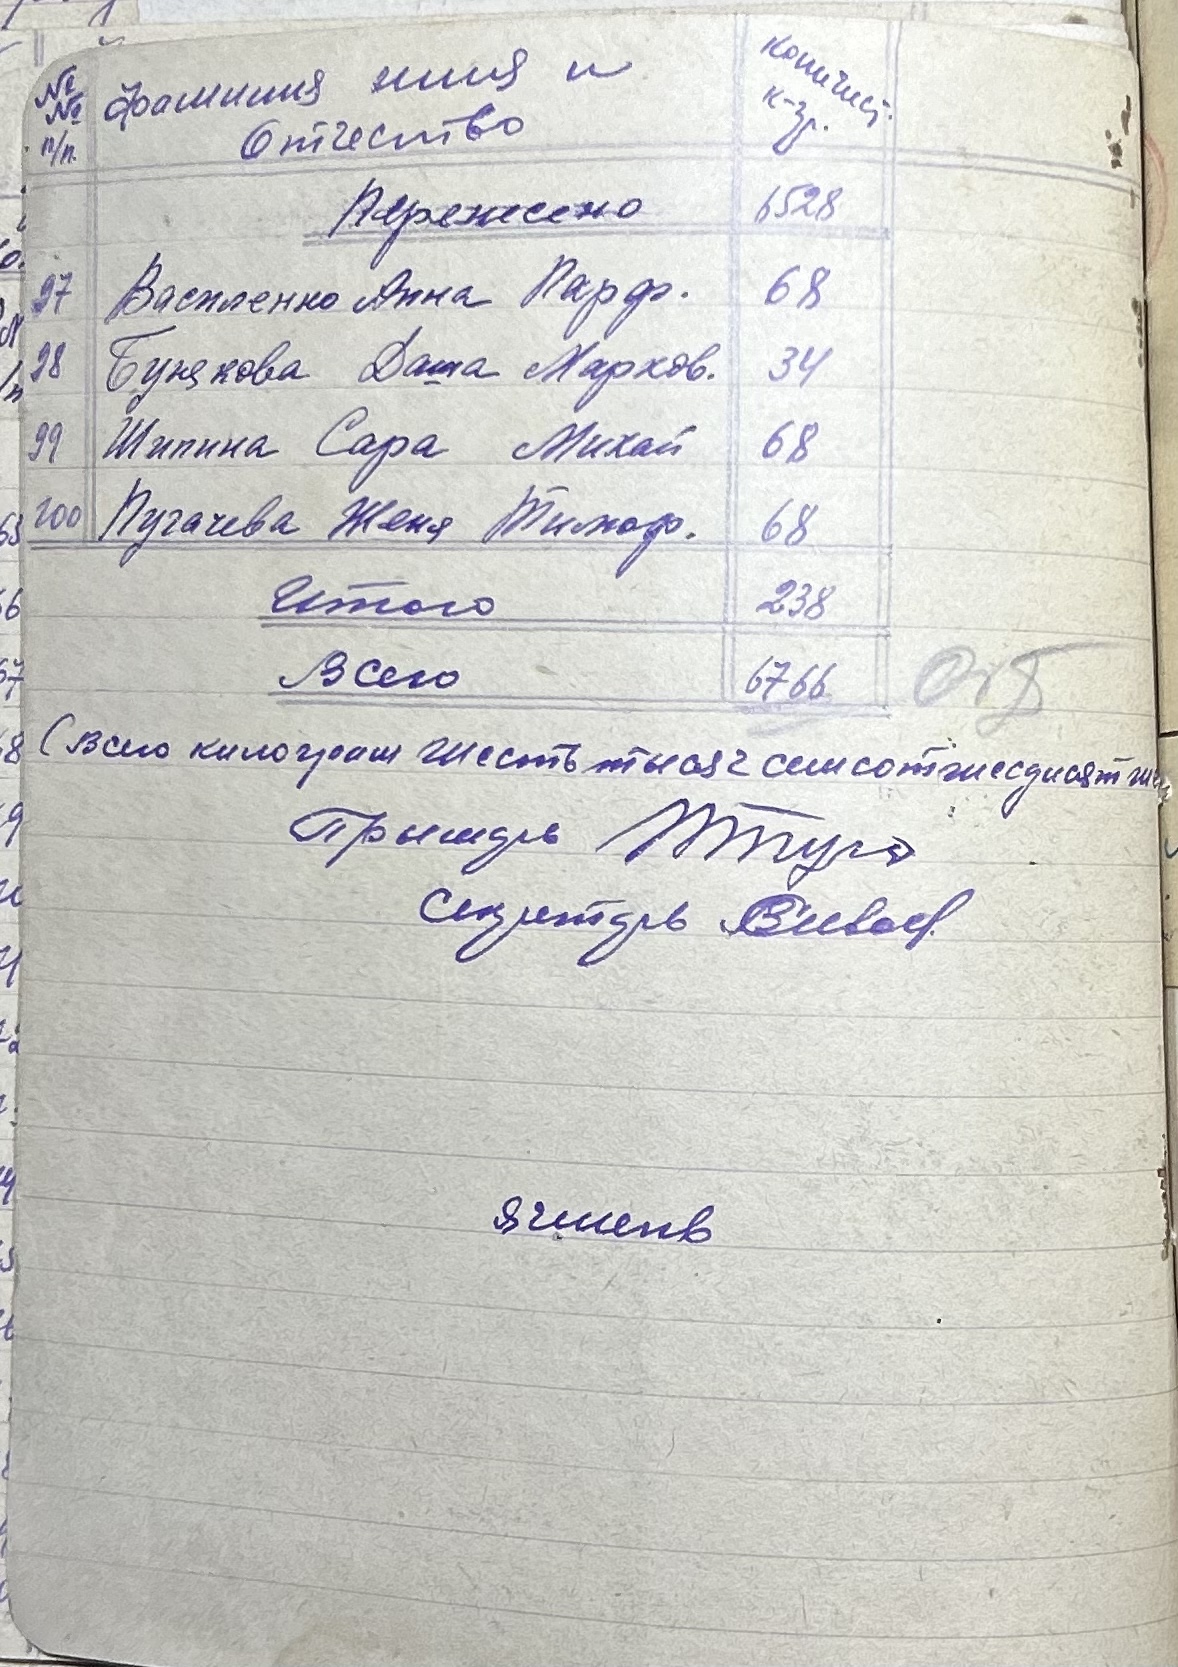 №№ п/п. Фамилия имя и Отчество Количест. к-гр.
Перенесено 6528
97 Василенко Анна Парф. 68
98 Бунякова Даша Марков. 34
99 Шипина Сара Михай 68
100 Пугачева Женя Тимоф. 68
Итого 238
Всего 6766
(Всего килограм шесть тысяч семсотшесдисят
Прымарь
Секретарь
Ячмень